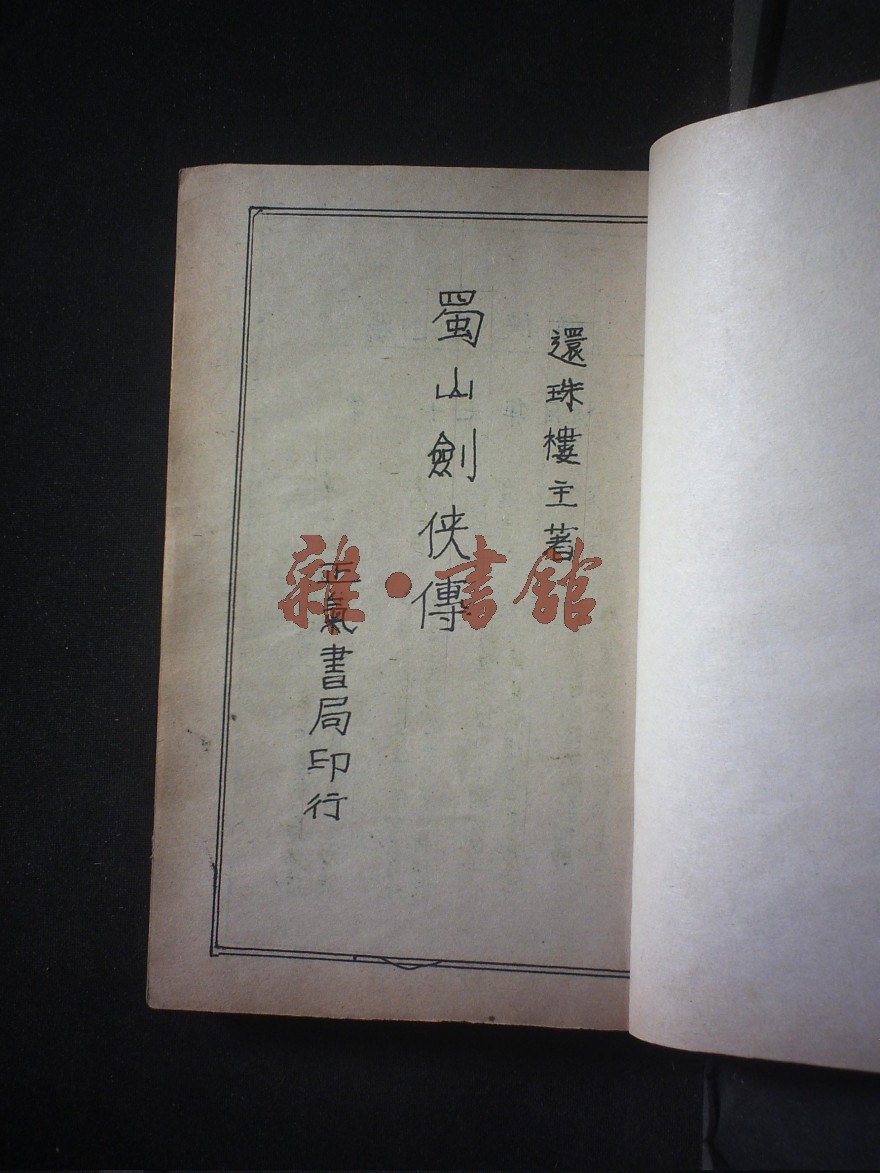 還珠樓主著
蜀山劍俠傳
正氣書局印行
雜·書館